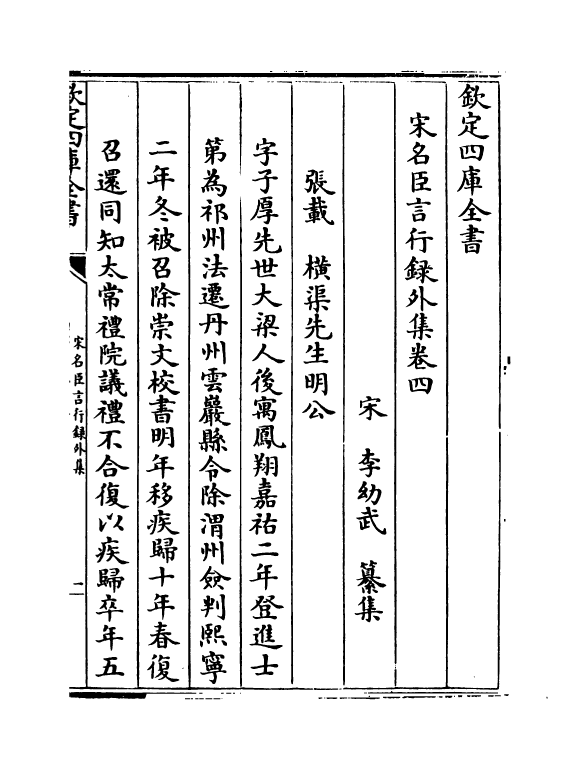 欽定四庫全書
宋名臣言行録外集卷四
宋　李幼武　纂集
張載　橫渠先生明公
字子厚先世大梁人後寓鳳翔嘉祐二年登進士
第為祁州法遷丹州雲巖縣令除渭州僉判熙寧
二年冬被召除崇文校書明年移疾歸十年春復
召還同知太常禮院議禮不合復以疾歸卒年五
欽定四庫全書
宋名臣言行録外集
二